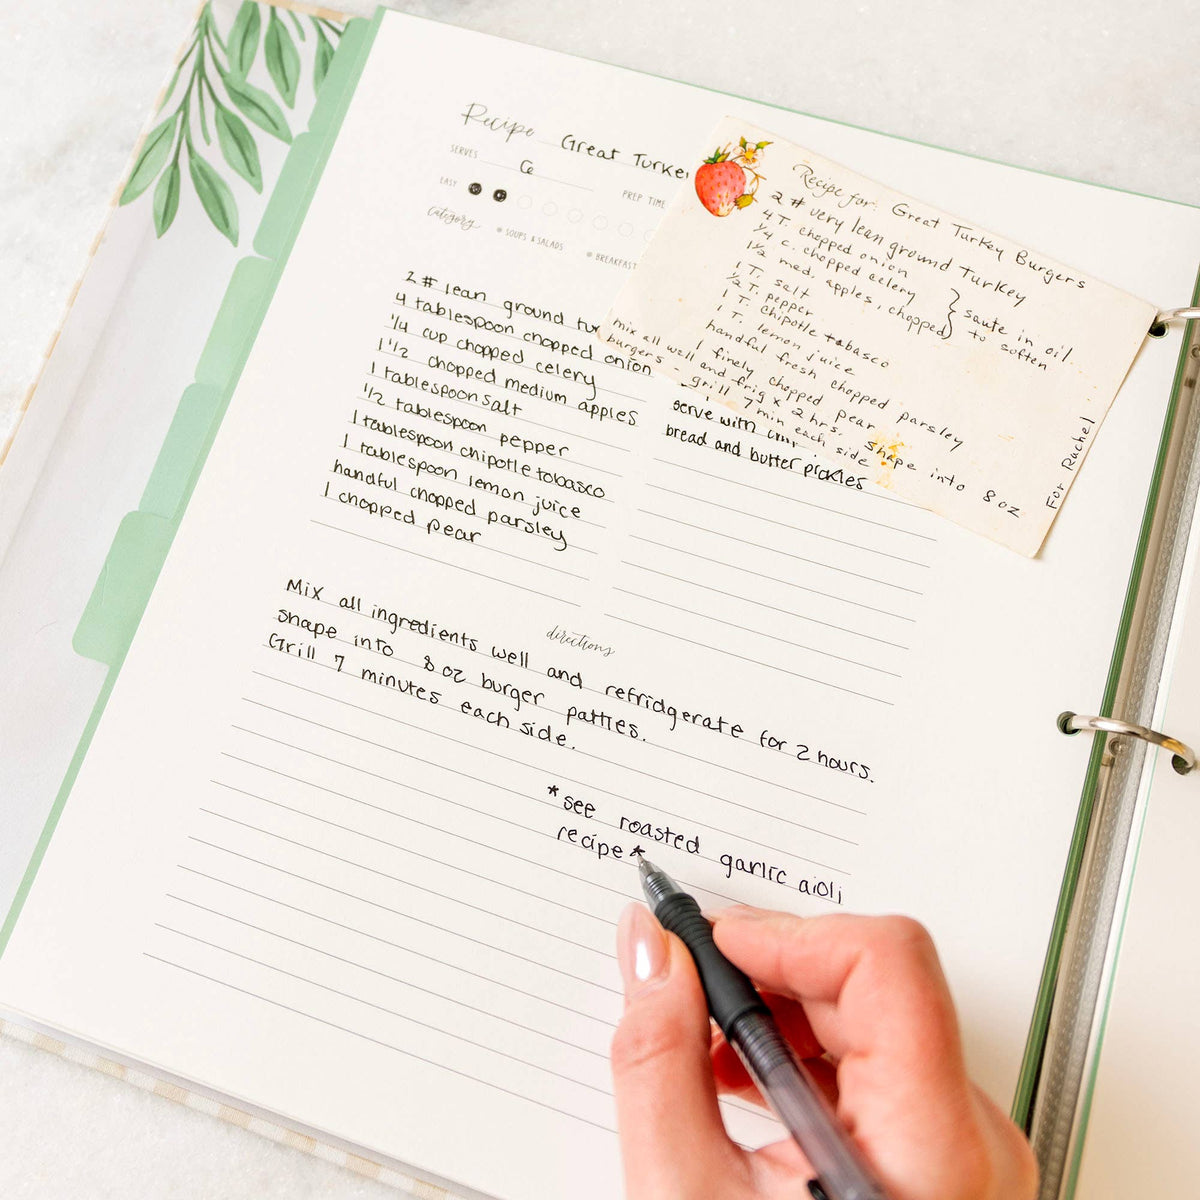 Recipe Great Turke
SERVES 6
EASY
PREP TIME
category
SOUPS & SALADS
BREAKFAST
2 # lean ground tur
4 tablespoon chopped onion
1/4 cup chopped celery
1 1/2 chopped medium apples
1 tablespoon salt
1/2 tablespoon pepper
1 tablespoon chipotle tobasco
1 tablespoon lemon juice
handful chopped parsley
1 chopped pear
serve with
bread and butter pickles
directions
Mix all ingredients well and refridgerate for 2 hours.
shape into 8 oz burger patties.
Grill 7 minutes each side.
*see roasted garlic aioli
recipe*
Recipe for: Great Turkey Burgers
2 # very lean ground Turkey
4 T. chopped onion
1/4 c. chopped celery
1 1/2 med. apples, chopped
} saute in oil
to soften
1 T. salt
1/2 T. pepper
1 T. chipotle tabasco
1 T. lemon juice
handful fresh chopped parsley
1 finely chopped pear
mix all well and frig x 2 hrs. Shape into 8 oz
burgers - grill 7 min each side
For Rachel